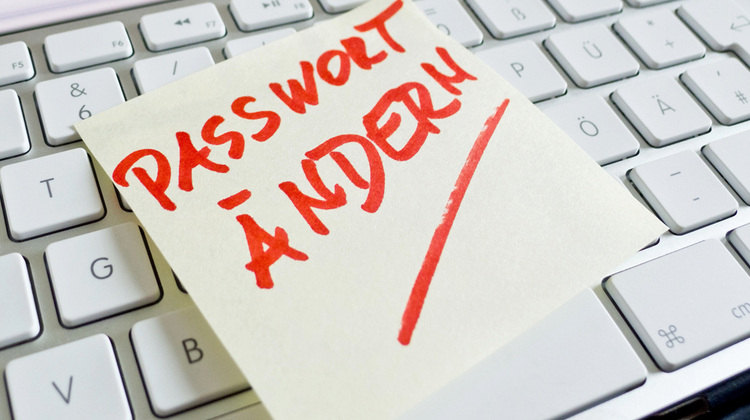 PASSWORT
ÄNDERN
F5
F6
F7
F8
&
6
/
P
ß
Ü
+
*
T
Ö
Ä
'
#
G
_
-
B
V
⌘
cm